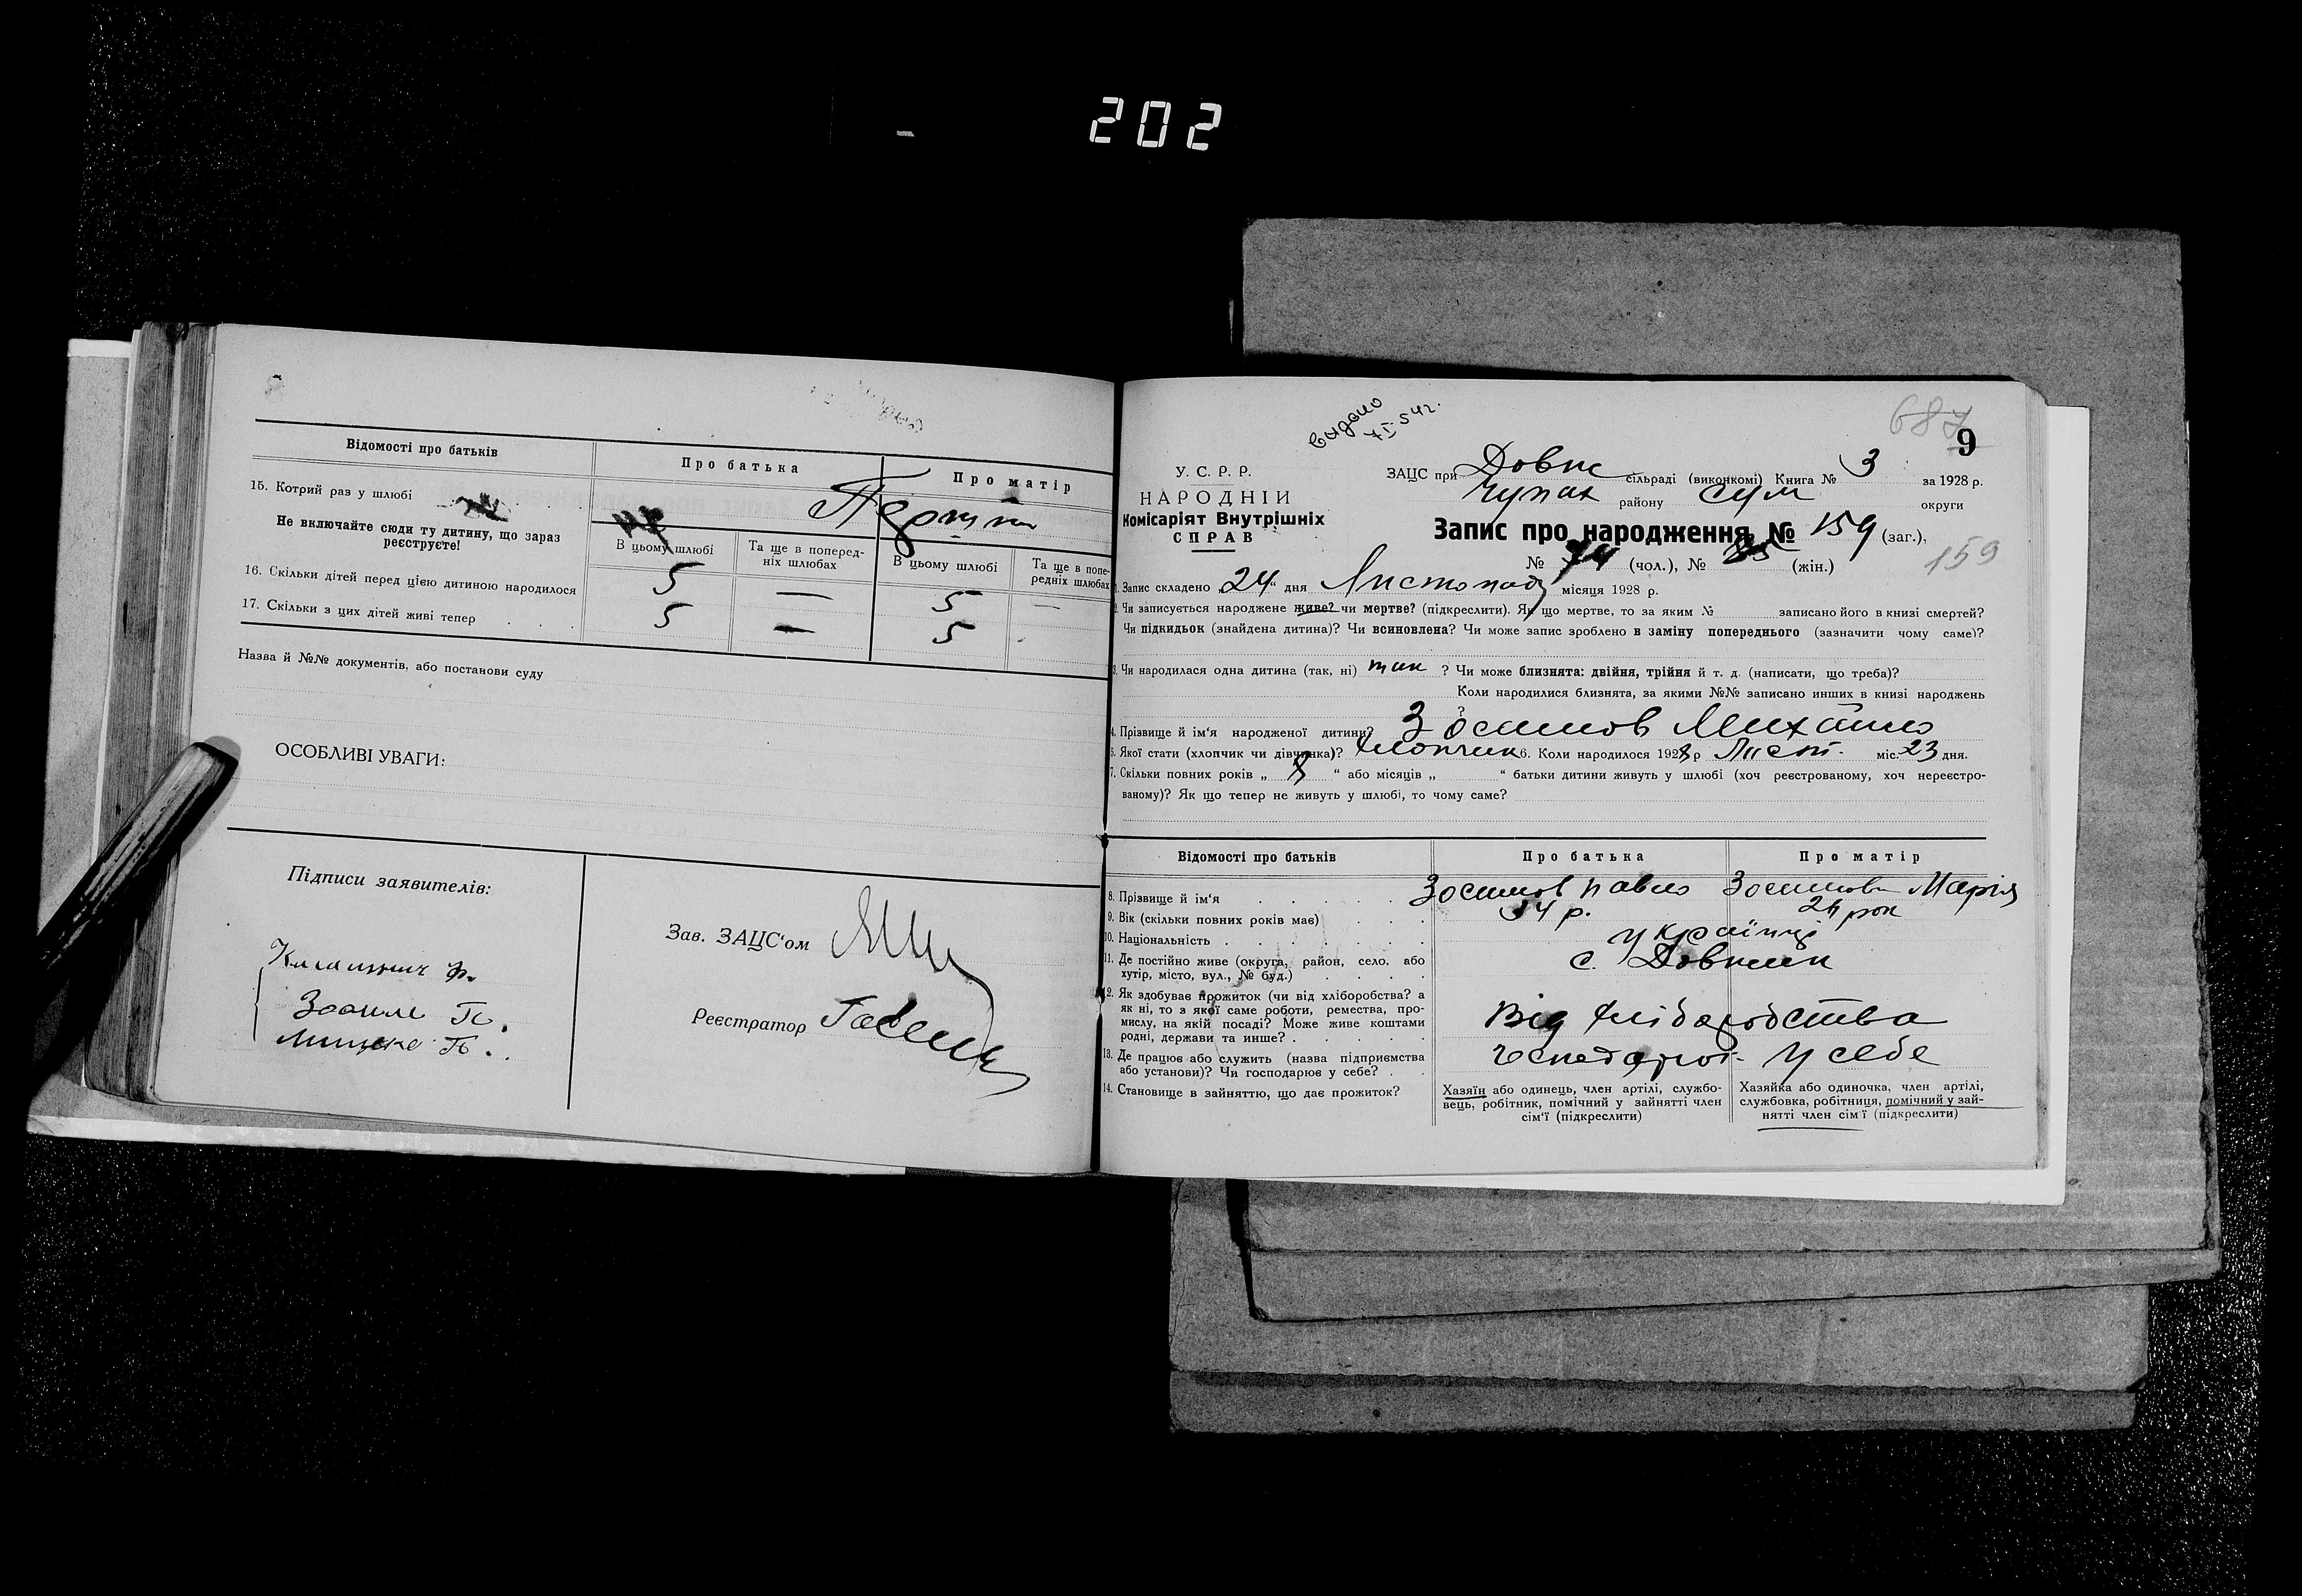 202
Відомості про батьків
Про батька
Про матір
15. Котрий раз у шлюбі
Не включайте сюди ту дитину, що зараз
реєструєте!
В цьому шлюбі
Та ще в поперед-
ніх шлюбах
В цьому шлюбі
Та ще в попе-
редніх шлюбах
16. Скільки дітей перед цією дитиною народилося 5 — 5 —
17. Скільки з цих дітей живі тепер 5 — 5
Назва й №№ документів, або постанови суду
ОСОБЛИВІ УВАГИ:
Підписи заявителів:
Зав. ЗАЦС'ом
Реєстратор
видано
7 I-54 г.
687
9
У. С. Р. Р.
НАРОДНІЙ
Комісаріят Внутрішніх
СПРАВ
ЗАЦС при Довж сільраді (виконкомі) Книга № 3 за 1928 р.
Чупах району Сум округи
Запис про народження № 159 (заг.),
№ 74 (чол.), № (жін.)
159
1. Запис складено 24 „ дня Листопад місяця 1928 р.
2. Чи записується народжене живе? чи мертве? (підкреслити). Як що мертве, то за яким № записано його в книзі смертей?
Чи підкидьок (знайдена дитина)? Чи всиновлена? Чи може запис зроблено в заміну попереднього (зазначити чому саме)?
3. Чи народилася одна дитина (так, ні) так ? Чи може близнята: двійня, трійня й т. д. (написати, що треба)?
Коли народилися близнята, за якими №№ записано инших в книзі народжень
?
4. Прізвище й ім'я народженої дитини? Зосимов Михайло
5. Якої стати (хлопчик чи дівчинка)? Хлопчик 6. Коли народилося 1928 р Лист. міс. 23 дня.
7. Скільки повних років „ 8 “ або місяців „ “ батьки дитини живуть у шлюбі (хоч реєстрованому, хоч нереєстро-
ваному)? Як що тепер не живуть у шлюбі, то чому саме?
Відомості про батьків
Про батька
Про матір
8. Прізвище й ім'я Зосимов Павло Зосимова Марія
9. Вік (скільки повних років має) 34 р.
10. Національність Українці
11. Де постійно живе (округа, район, село, або
хутір, місто, вул., № буд.) с. Довжик
12. Як здобуває прожиток (чи від хліборобства? а
як ні, то з якої саме роботи, ремества, про-
мислу, на якій посаді? Може живе коштами
родні, держави та инше?
Від хліборобства
13. Де працює або служить (назва підприємства
або установи)? Чи господарює у себе?
у себе
14. Становище в зайняттю, що дає прожиток?
Хазяїн або одинець, член артілі, службо-
вець, робітник, помічний у зайнятті член
сім'ї (підкреслити)
Хазяйка або одиночка, член артілі,
службовка, робітниця, помічний у зай-
нятті член сім'ї (підкреслити)